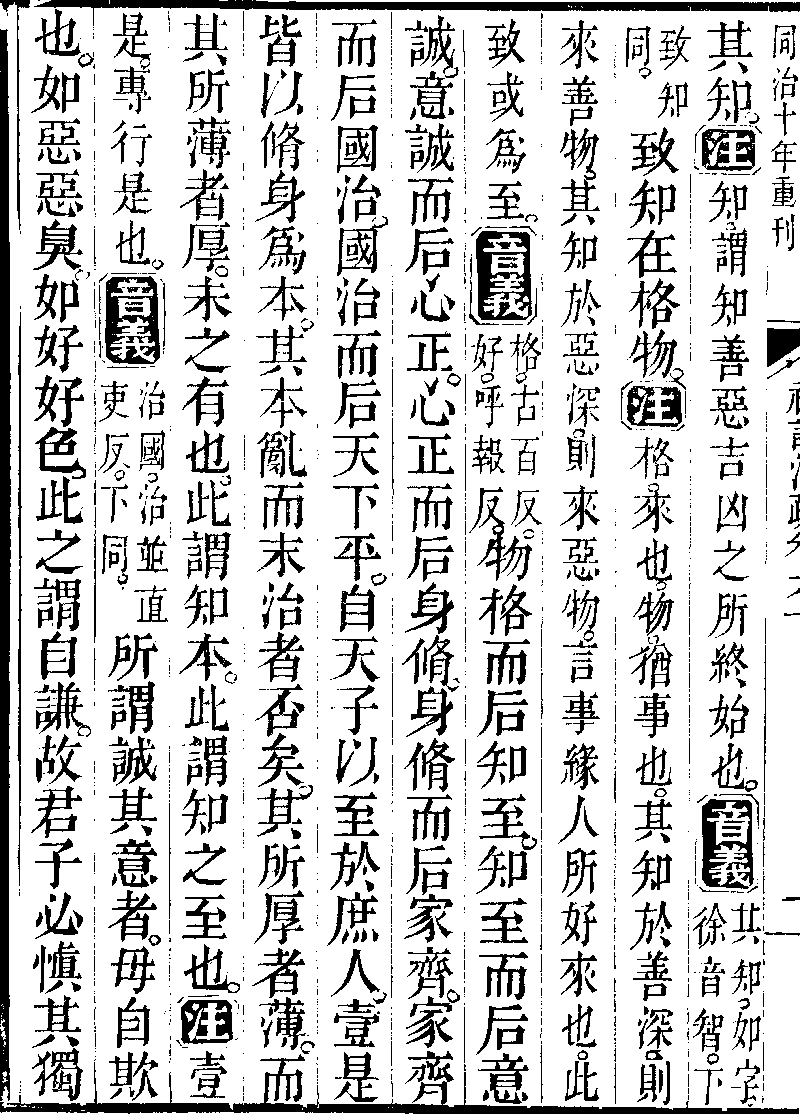 同治十年重刊
其知。注知。謂知善惡吉凶之所終始也。音義其知。如字。徐音智。下
致知同。致知在格物。注格。來也。物。猶事也。其知於善深。則
來善物。其知於惡深。則來惡物。言事緣人所好來也。此
致或爲至。音義格。古百反。好。呼報反。物格而后知至。知至而后意
誠。意誠而后心正。心正而后身脩。身脩而后家齊。家齊
而后國治。國治而后天下平。自天子以至於庶人。壹是
皆以脩身爲本。其本亂而末治者否矣。其所厚者薄。而
其所薄者厚。未之有也。此謂知本。此謂知之至也。注壹
是。專行是也。音義治國。治並直吏反。下同。所謂誠其意者。毋自欺
也。如惡惡臭。如好好色。此之謂自謙。故君子必慎其獨